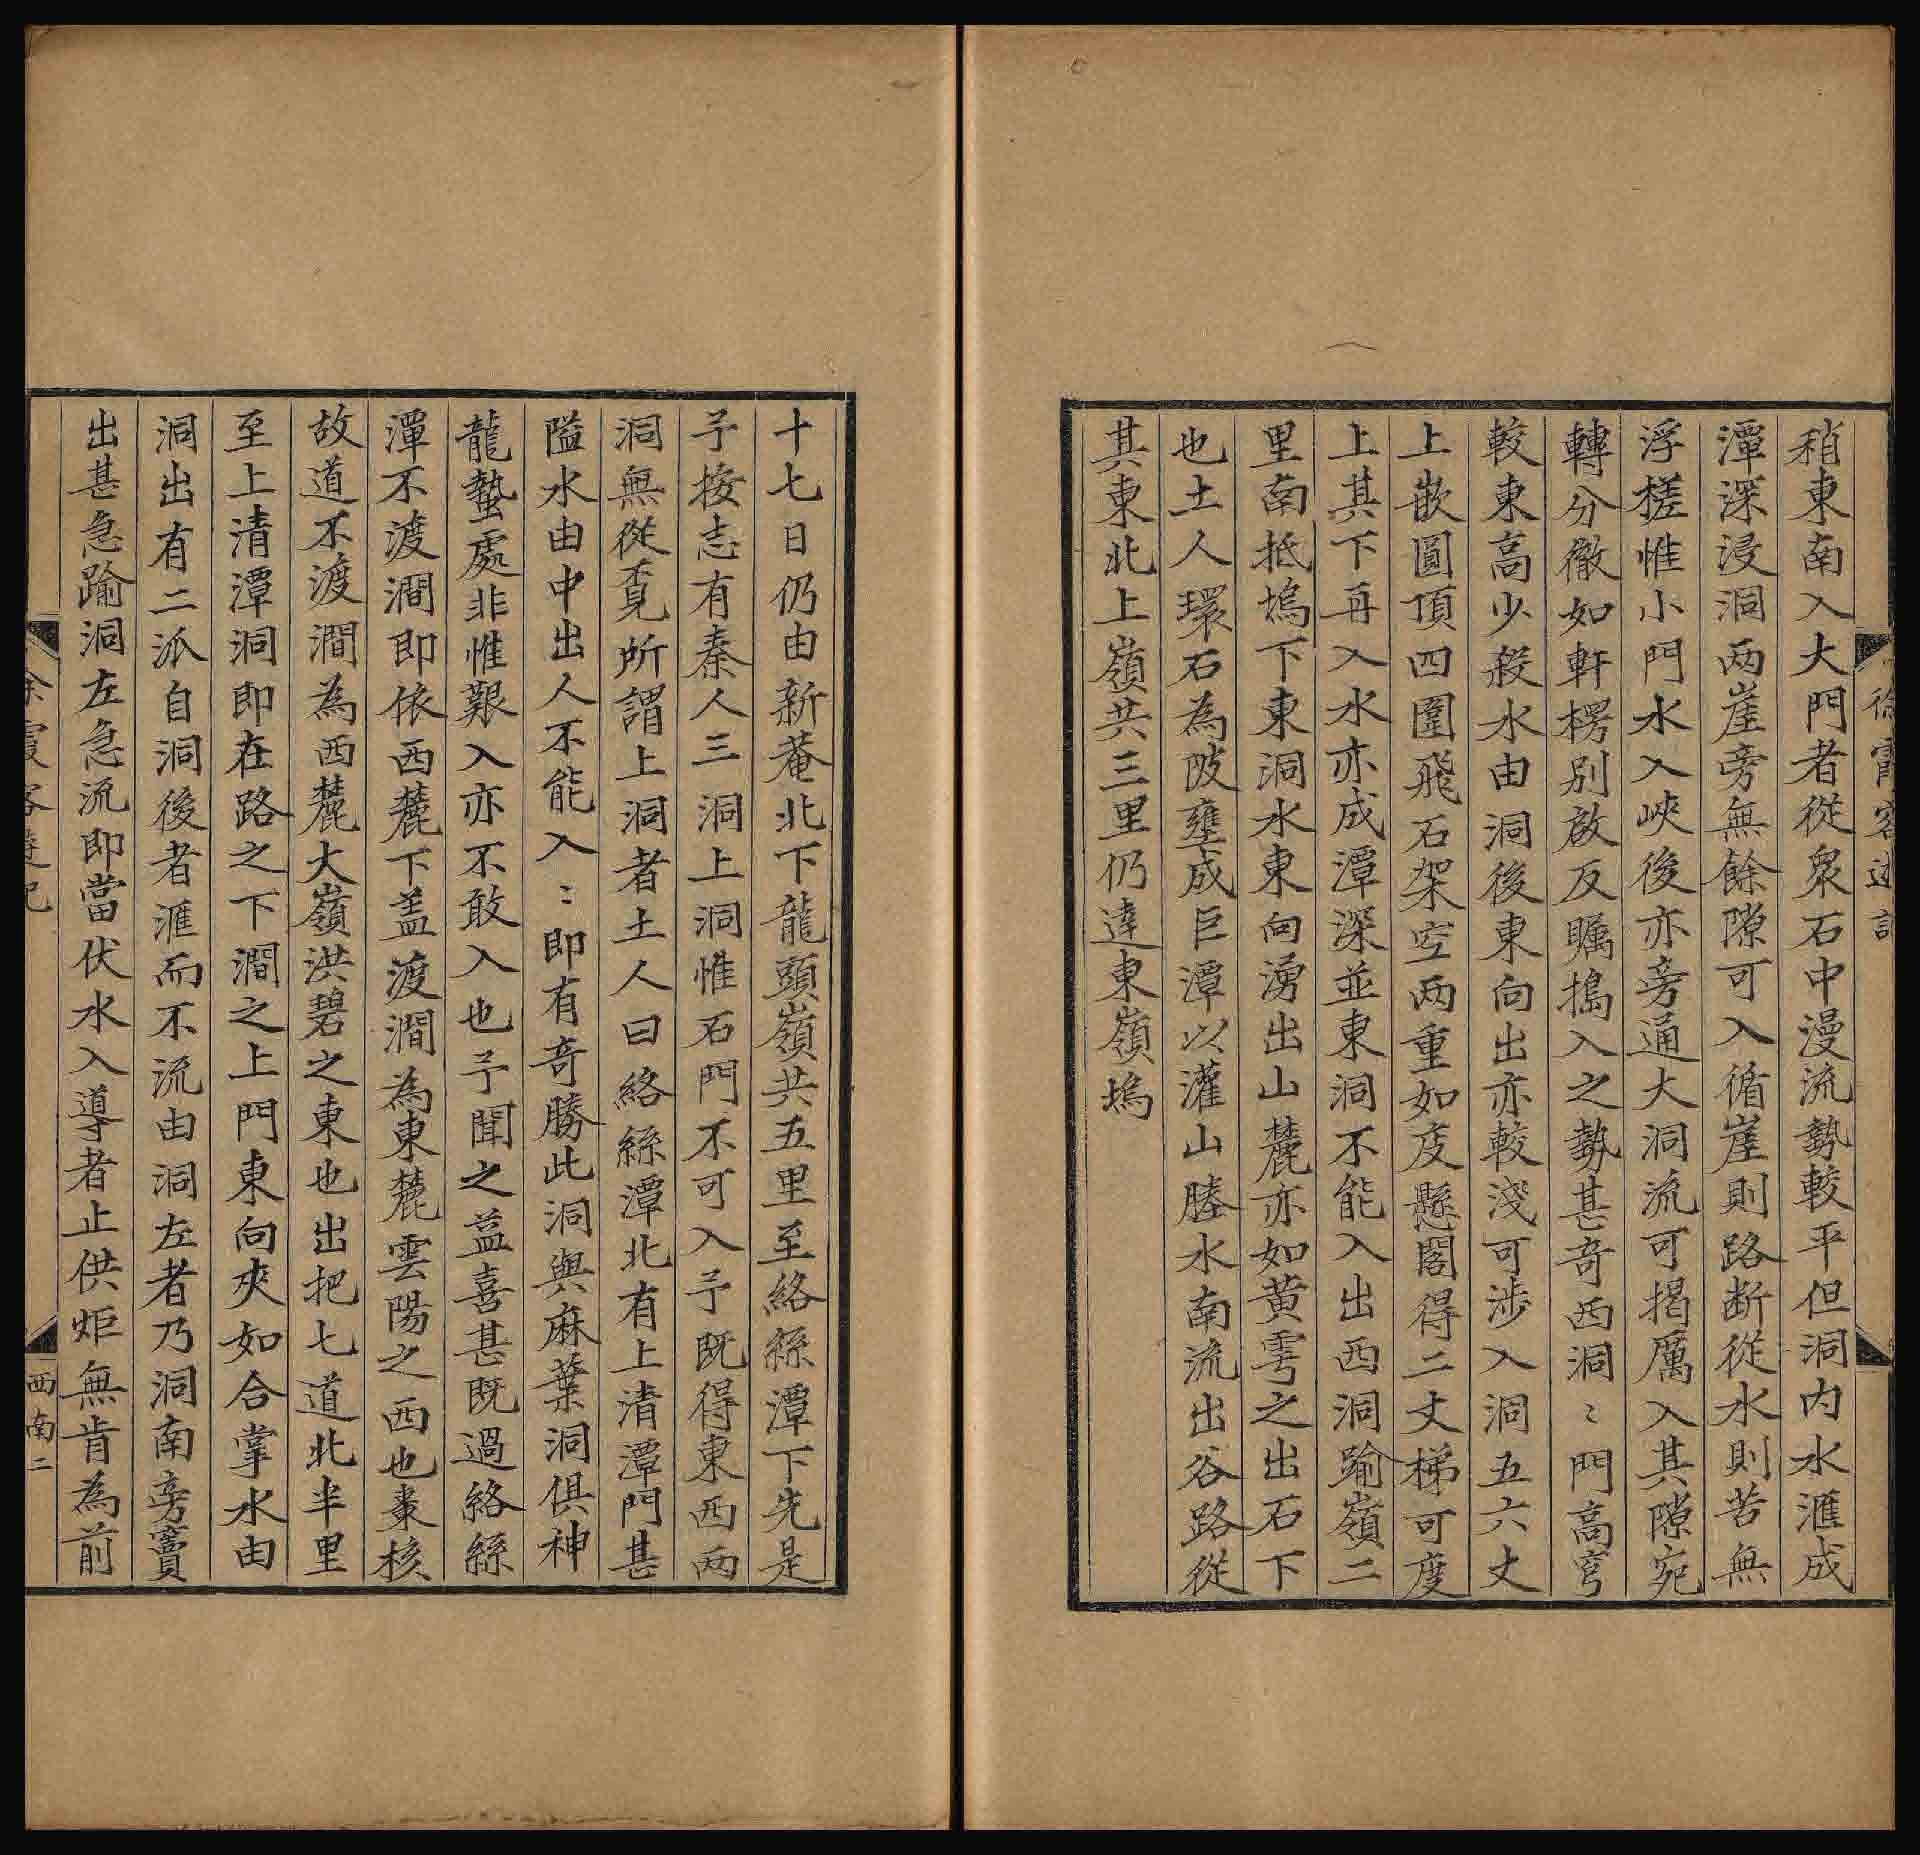 稍東南入大門者從衆石中漫流勢較平但洞内水滙成
潭深浸洞两崖旁無餘隙可入循崖則路断從水則苦無
浮槎惟小門水入峽後亦旁通大洞流可揭厲入其隙宛
轉分徹如軒楞别啟反矚搗入之勢甚奇西洞〻門高穹
較東高少殺水由洞後東向出亦較淺可涉入洞五六丈
上嵌圓頂四圍飛石架空两重如庋懸閣得二丈梯可度
上其下再入水亦成潭深並東洞不能入出西洞踰嶺二
里南抵塢下東洞水東向湧出山麓亦如黄雩之出石下
也土人環石為陂壅成巨潭以灌山塍水南流出谷路從
其東北上嶺共三里仍達東嶺塢
徐霞客遊記
十七日仍由新菴北下龍頭嶺共五里至絡絲潭下先是
予按志有秦人三洞上洞惟石門不可入予既得東西两
洞無從覓所謂上洞者土人曰絡絲潭北有上清潭門甚
隘水由中出人不能入〻即有奇勝此洞與麻葉洞俱神
龍蟄處非惟艱入亦不敢入也予聞之益喜甚既過絡絲
潭不渡澗即依西麓下盖渡澗為東麓雲陽之西也棗核
故道不渡澗為西麓大嶺洪碧之東也出把七道北半里
至上清潭洞即在路之下澗之上門東向夾如合掌水由
洞出有二派自洞後者滙而不流由洞左者乃洞南旁竇
出甚急踰洞左急流即當伏水入導者止供炬無肯為前
徐霞客遊記
西南二